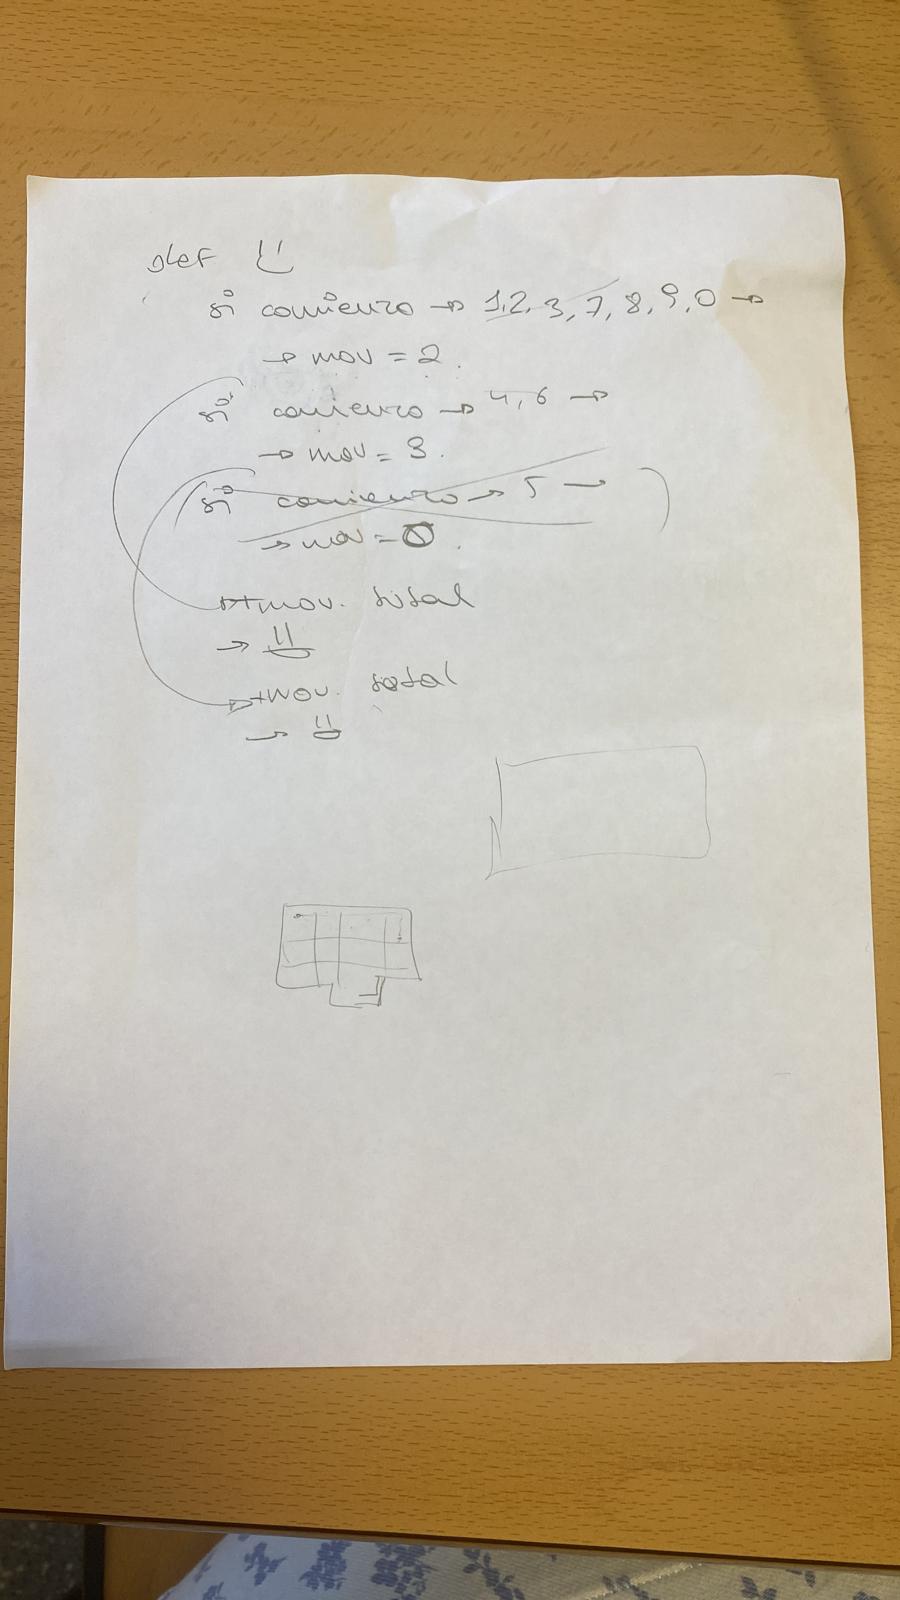 def
si comienzo → 1,2,3,7,8,9,0 →
→ mov = 2.
si comienzo → 4,6 →
→ mov = 3.
(si comienzo → 5 → )
→ mov = 0.
+mov. total
→
→ +mov. total
→